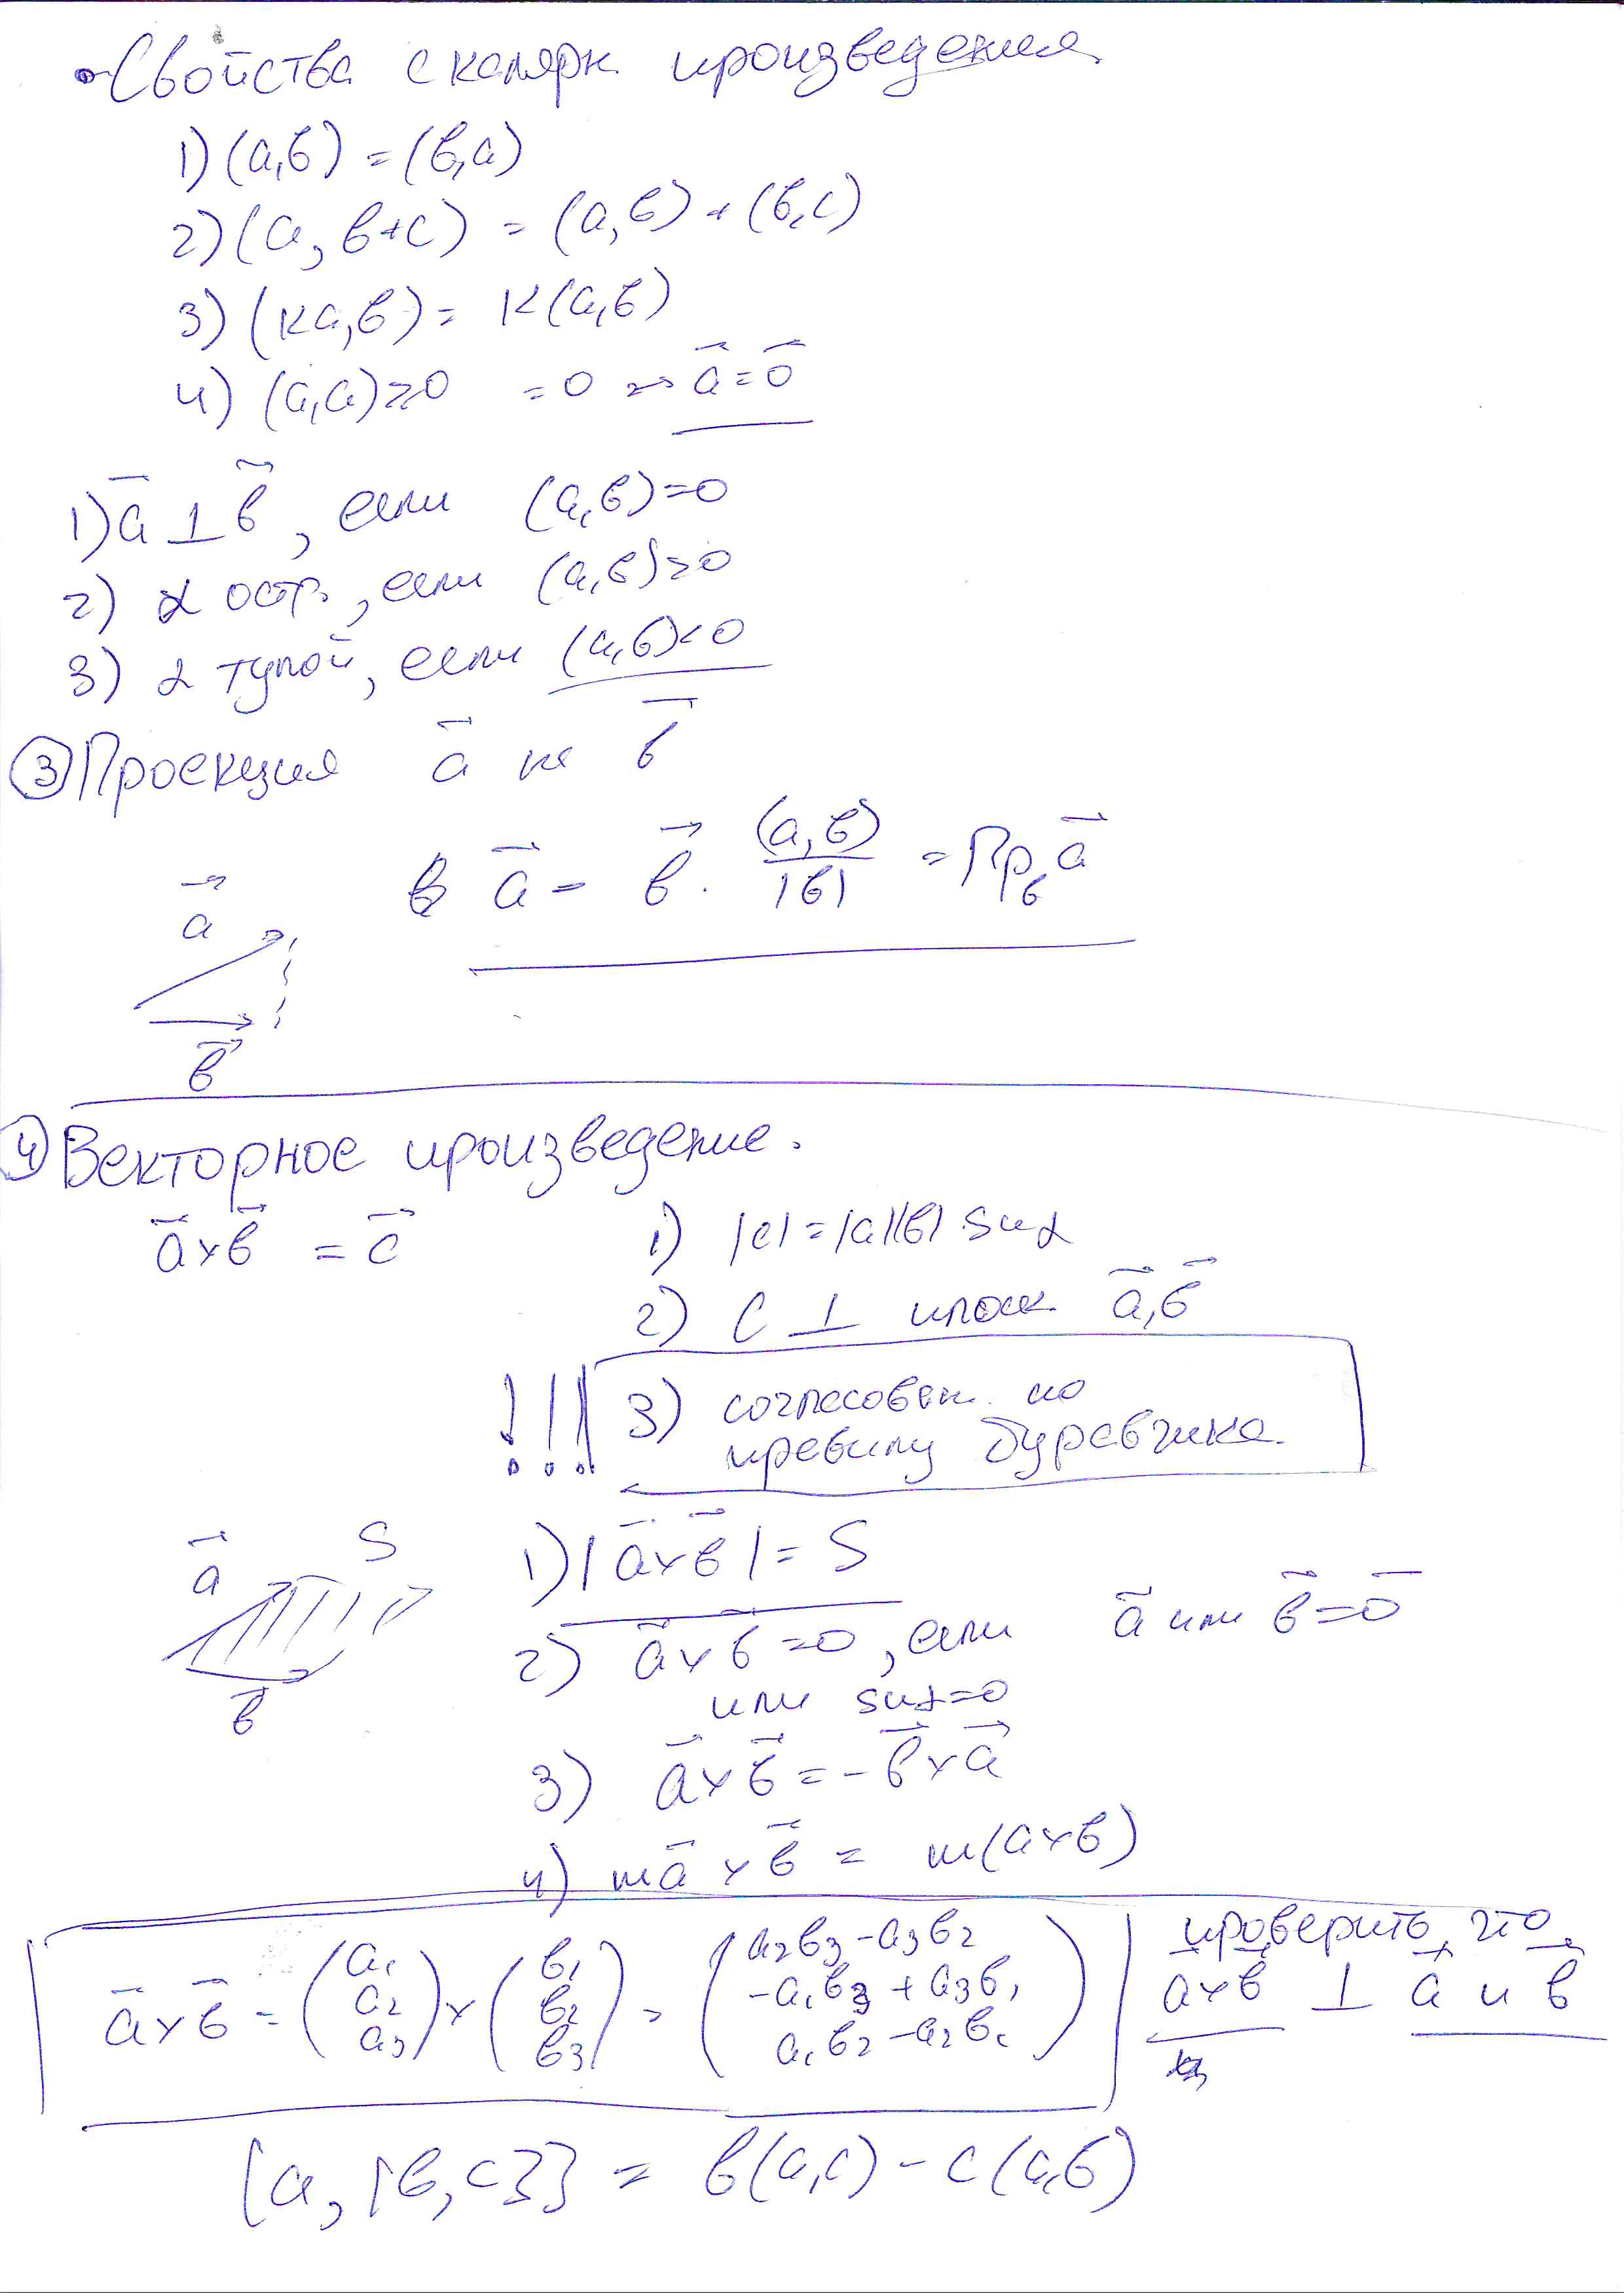 • Свойства скалярн. произведения
1) (a,b) = (b,a)
2) (a, b+c) = (a,b) + (b,c)
3) (ka,b) = k(a,b)
4) (a,a) ≥ 0 = 0 ⇔ a⃗ = 0⃗
1) a⃗ ⊥ b⃗, если (a,b)=0
2) α остр., если (a,b)>0
3) α тупой, если (a,b)<0
③ Проекция a⃗ на b⃗
a⃗ = b⃗ · (a,b)/|b| = Пр_b a⃗
a⃗
b⃗
④ Векторное произведение.
a⃗×b⃗ = c⃗
1) |c| = |a||b| sin α
2) c ⊥ плоск. a⃗,b⃗
!!! 3) согласован. по
правилу буравчика.
a⃗ S
b⃗
1) |a⃗×b⃗| = S
2) a⃗×b = 0, если a⃗ или b⃗=0⃗
или sin α=0
3) a⃗×b⃗ = -b⃗×a⃗
4) ma⃗ × b⃗ = m(a×b)
a⃗×b⃗ = (a₁ a₂ a₃) × (b₁ b₂ b₃) = (a₂b₃-a₃b₂ -a₁b₃+a₃b₁ a₁b₂-a₂b₁)
проверить, что
a⃗×b⃗ ⊥ a⃗ и b⃗
[a, [b,c]] = b(a,c) - c(a,b)